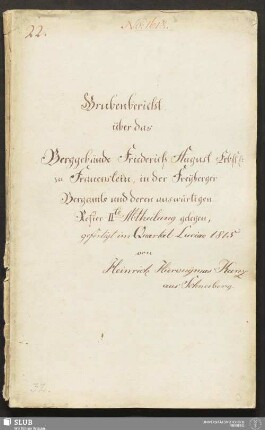 22.
Grubenbericht
über das
Berggebäude Friederich August Erbst.
zu Frauenstein, in der Freyberger
Bergamts und deren auswärtigen
Refier IIte Abtheilung gelegen,
gefertigt im Quartal Luciae 1815
von
Heinrich Hieronymus Kunz
aus Schneeberg
SLUB